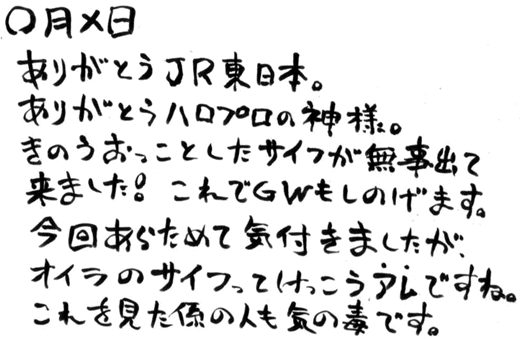 〇月×日
ありがとうJR東日本。
ありがとうハロプロの神様。
きのうおっことしたサイフが無事出て
来ました！これでGWもしのげます。
今回あらためて気付きましたが、
オイラのサイフってけっこうアレですね。
これを見た係の人も気の毒です。